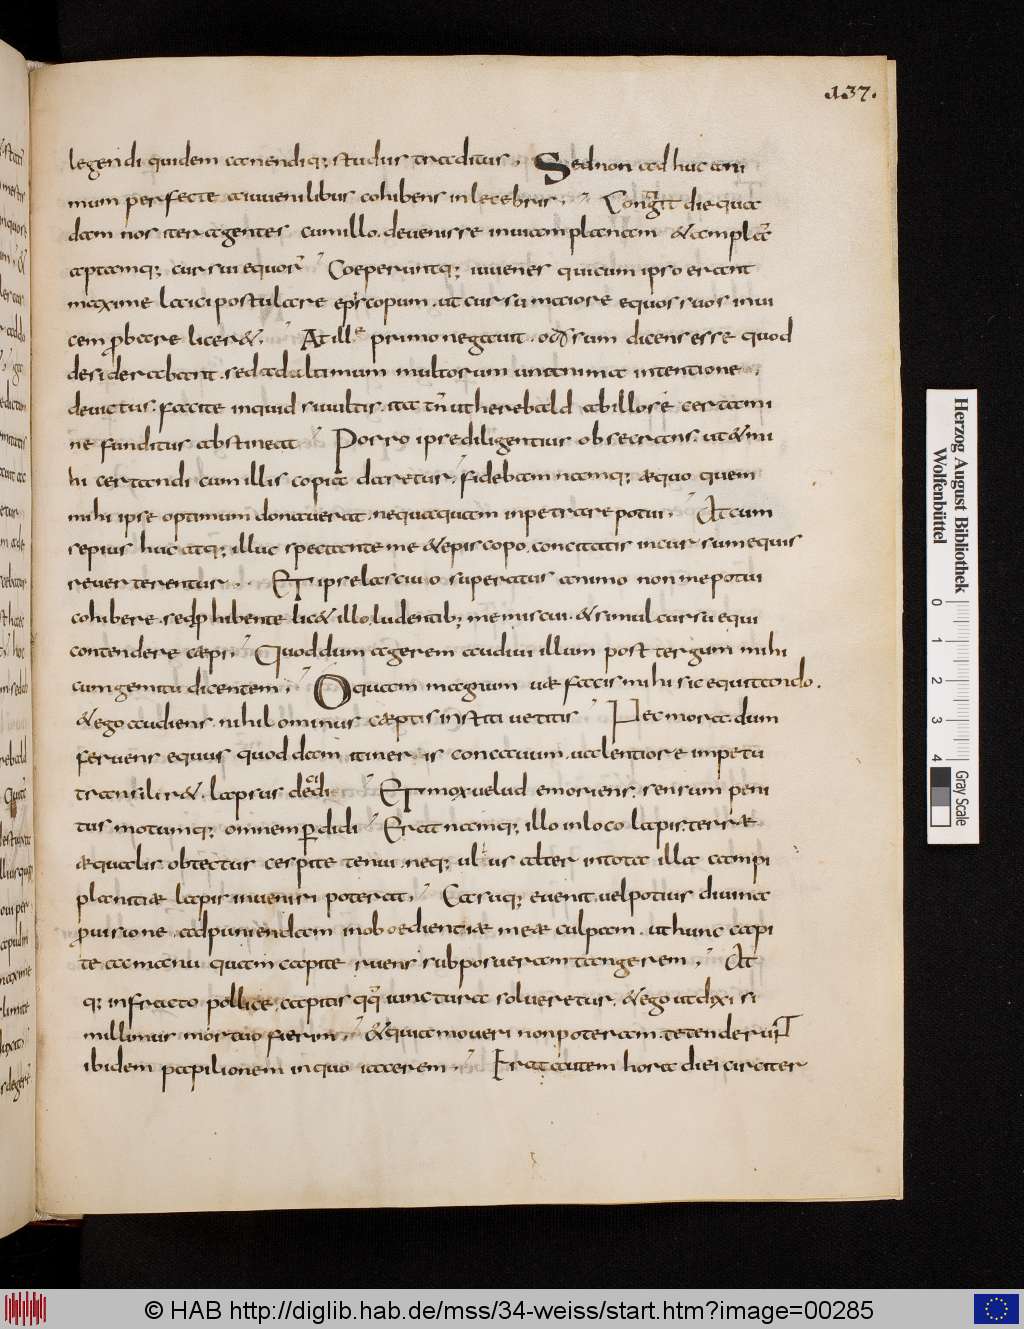 137.
legendi quidem canendiq; studiis traditus, Sed non ad huc ani
mum perfecte a iuuenilibus cohibens inlecebris. Contigit die qua
dam nos iter agentes cum illo. deuenisse in uiam planam & amplā
aptamq; cursui equorū Coeperuntq; iuuenes qui cum ipso erant
maxime laici postulare episcopum. ut cursu maiore equos suos inui
cem ꝓbare licer&. At ille primo negauit. odiosum dicens esse quod
desiderabant. sed ad ultimum multorum unanima intentione
deuictus. facite inquid si uultis. ita tn̄ ut herebald ab illo se certami
ne funditus abstineat Porro ipse diligentius obsecrans. ut & mi
hi certandi cum illis copia daretur. fidebam namq; æquo quem
mihi ipse optimum donauerat. nequaquam inpetrare potui. At cum
sepius huc atq; illuc spectante me & episcopo. concitatis in cursum equis
reuerterentur. Et ipse lasciuo superatus animo non me potui
cohibere. sed ꝓhibente lic& illo. ludentib; me miscui. & simul cursu equi
contendere cæpi. Quod dum agerem audiui illum post tergum mihi
cum gemitu dicentem. O quam magnum uæ facis mihi sic equitando.
& ego audiens. nihil ominus cæptis institi uetitis Nec mora. dum
feruens equus quoddam itineris concauum. ualentiore impetu
transilir&. lapsus decidi Et mox uelud emoriens. sensum peni
tus motumq; omnem ꝑdidi Erat namq; illo in loco lapis. terræ
æqualis obtectus cespite tenui. neq; ullus alter in tota illa campi
planitiæ lapis inueniri poterat. Casuq; euenit. uel potius diuina
ꝓuisione. ad puniendam inoboedientiæ meæ culpam. ut hunc capi
te ac manu quam capite ruens subposueram tangerem. At
q; infracto pollice. capitis qq̄ iunctura solueretur. & ego ut dixi si
millimus mortuo fierem. & quia moueri non poteram. tetenderunt
ibidem papilionem in quo iacerem. Erat autem hora diei circiter
Herzog August Bibliothek
Wolfenbüttel
0 1 2 3 4
Gray Scale
© HAB http://diglib.hab.de/mss/34-weiss/start.htm?image=00285